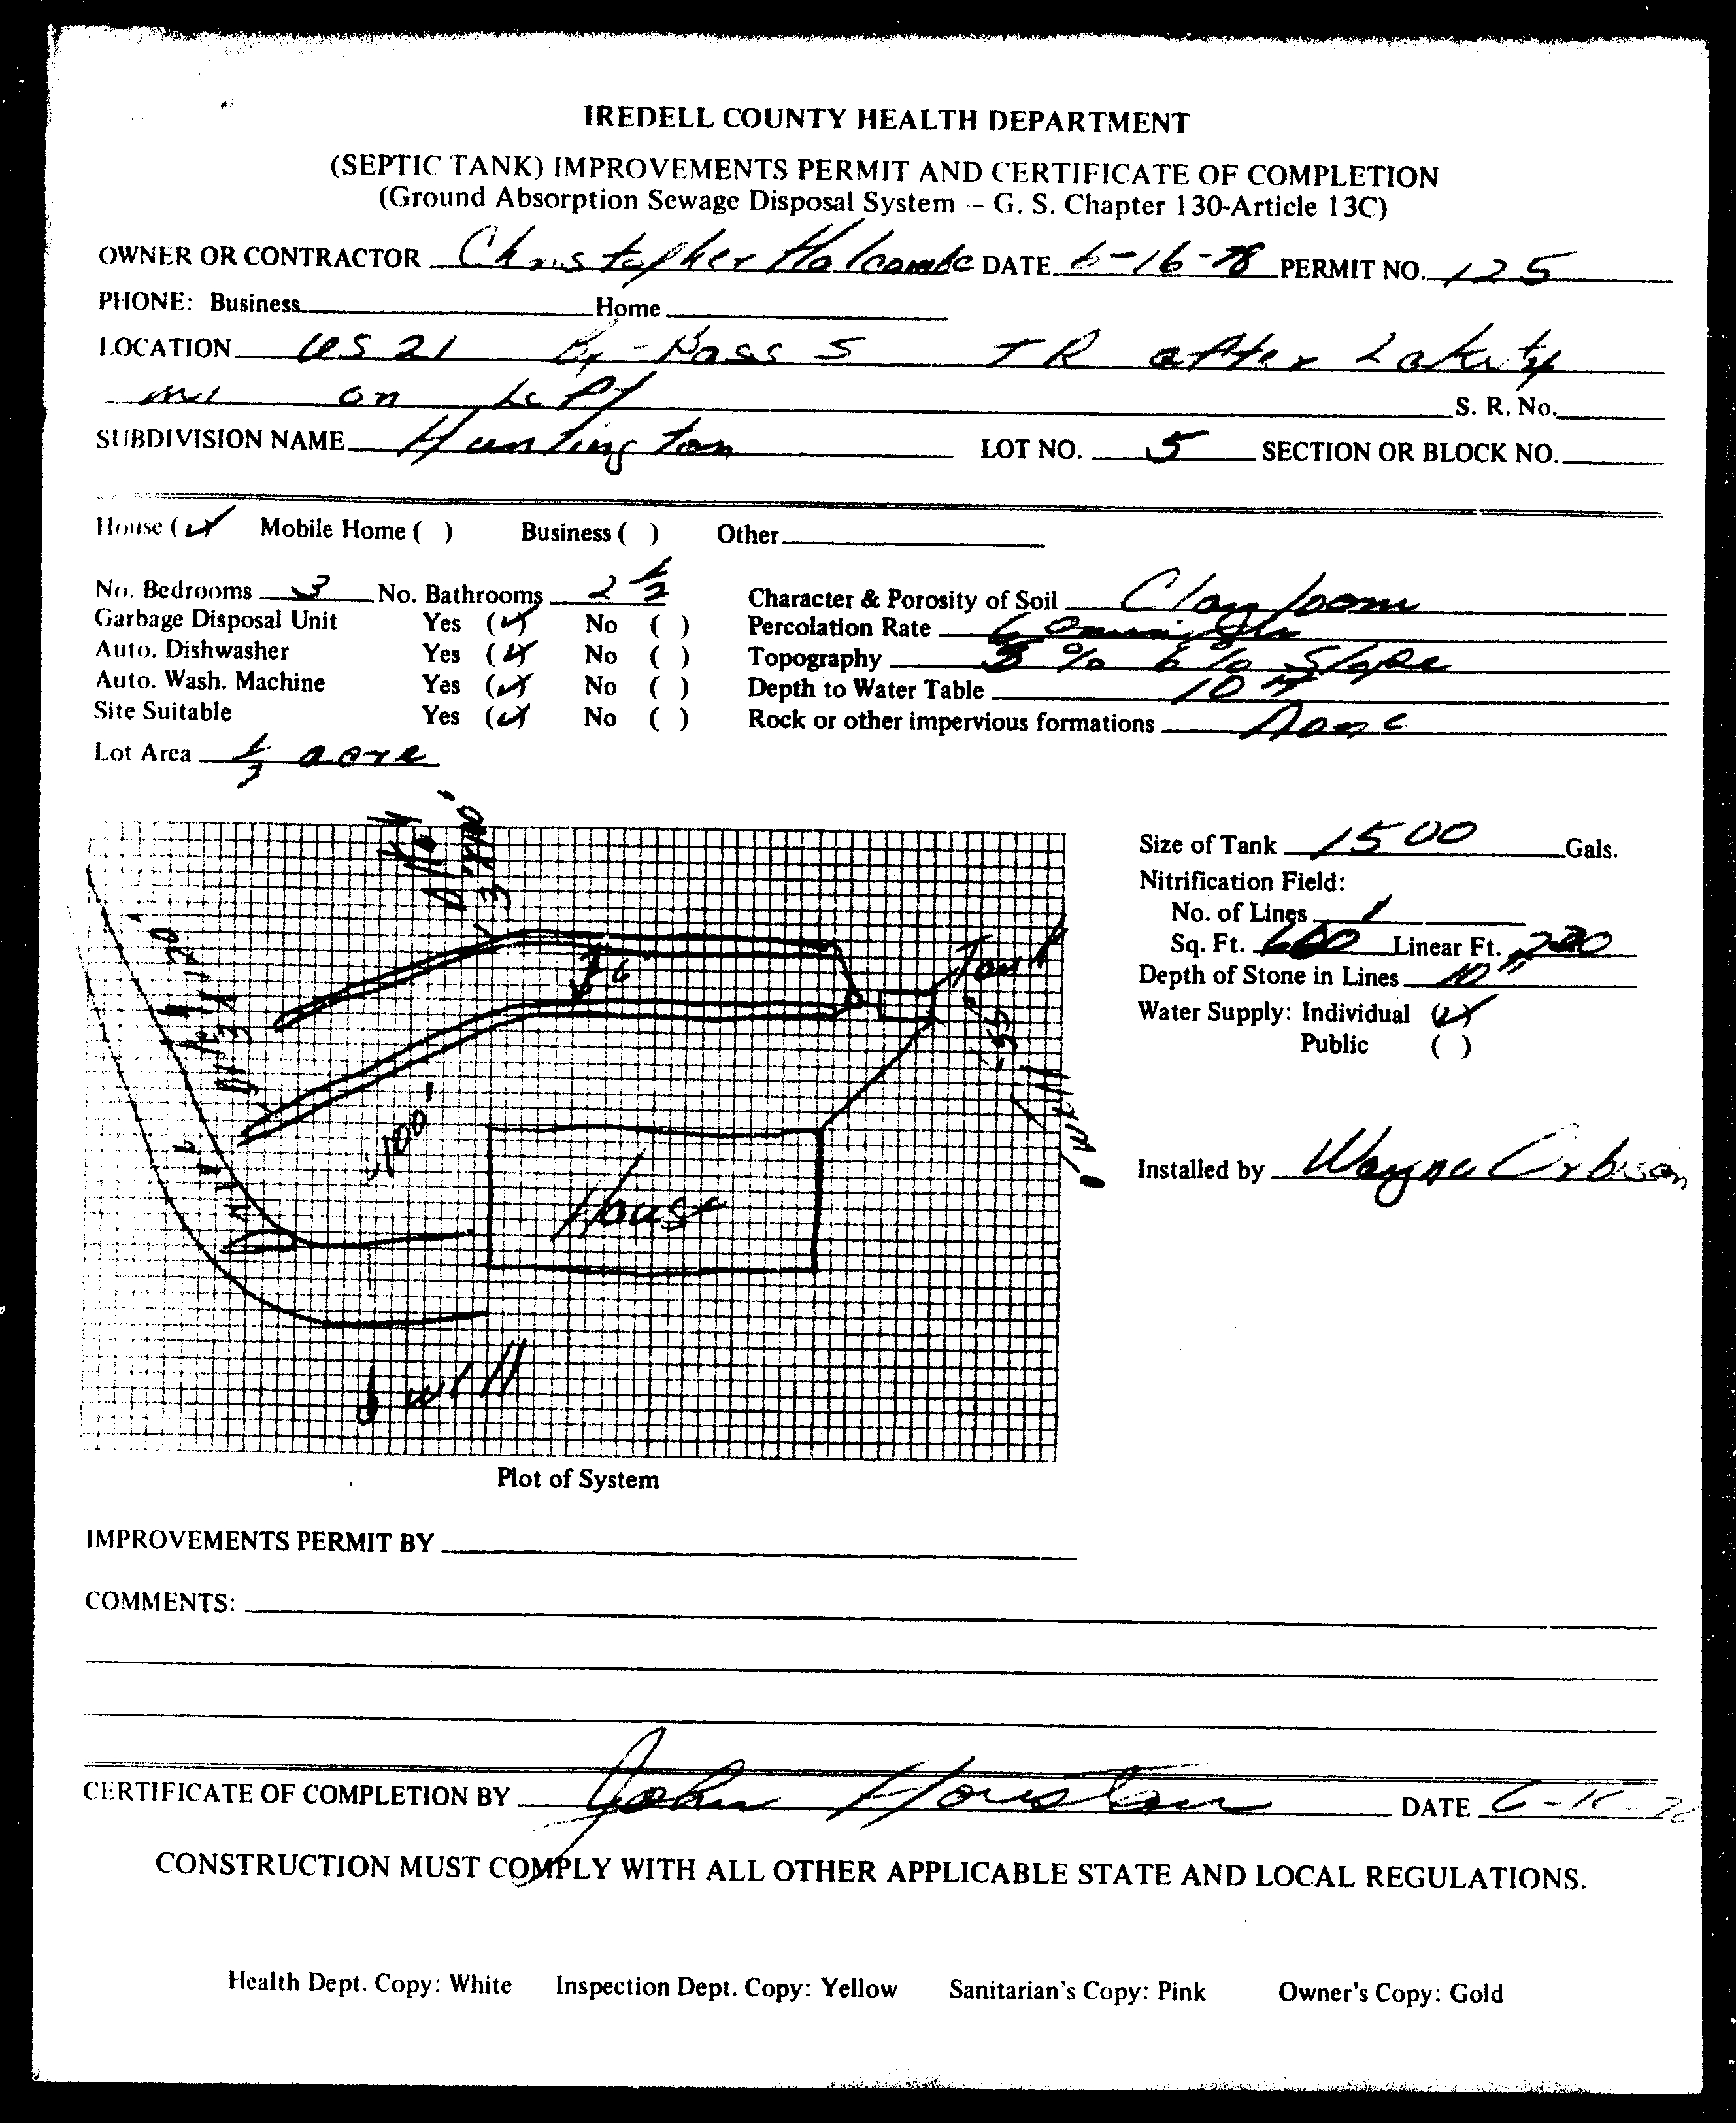 IREDELL COUNTY HEALTH DEPARTMENT
(SEPTIC TANK) IMPROVEMENTS PERMIT AND CERTIFICATE OF COMPLETION
(Ground Absorption Sewage Disposal System – G. S. Chapter 130-Article 13C)
OWNER OR CONTRACTOR Christopher Holcombe DATE 6-16-78 PERMIT NO. 125
PHONE: Business Home
LOCATION US 21 By-Pass S TR after
mi on Left S. R. No.
SUBDIVISION NAME Huntington LOT NO. 5 SECTION OR BLOCK NO.
House (✓) Mobile Home ( ) Business ( ) Other
No. Bedrooms 3 No. Bathrooms 2 1/2 Character & Porosity of Soil Clay loam
Garbage Disposal Unit Yes (✓) No ( ) Percolation Rate
Auto. Dishwasher Yes (✓) No ( ) Topography 3 % 6 % Slope
Auto. Wash. Machine Yes (✓) No ( ) Depth to Water Table 10
Site Suitable Yes (✓) No ( ) Rock or other impervious formations None
Lot Area 1/3 acre
Size of Tank 1500 Gals.
Nitrification Field:
No. of Lines 1
Sq. Ft. 660 Linear Ft. 220
Depth of Stone in Lines 10"
Water Supply: Individual (✓)
Public ( )
Installed by Wayne Orbison
Ditch
Tank
6'
55'
Well
Ditch
100'
House
Well
Plot of System
IMPROVEMENTS PERMIT BY
COMMENTS:
CERTIFICATE OF COMPLETION BY John Houston DATE
CONSTRUCTION MUST COMPLY WITH ALL OTHER APPLICABLE STATE AND LOCAL REGULATIONS.
Health Dept. Copy: White Inspection Dept. Copy: Yellow Sanitarian's Copy: Pink Owner's Copy: Gold